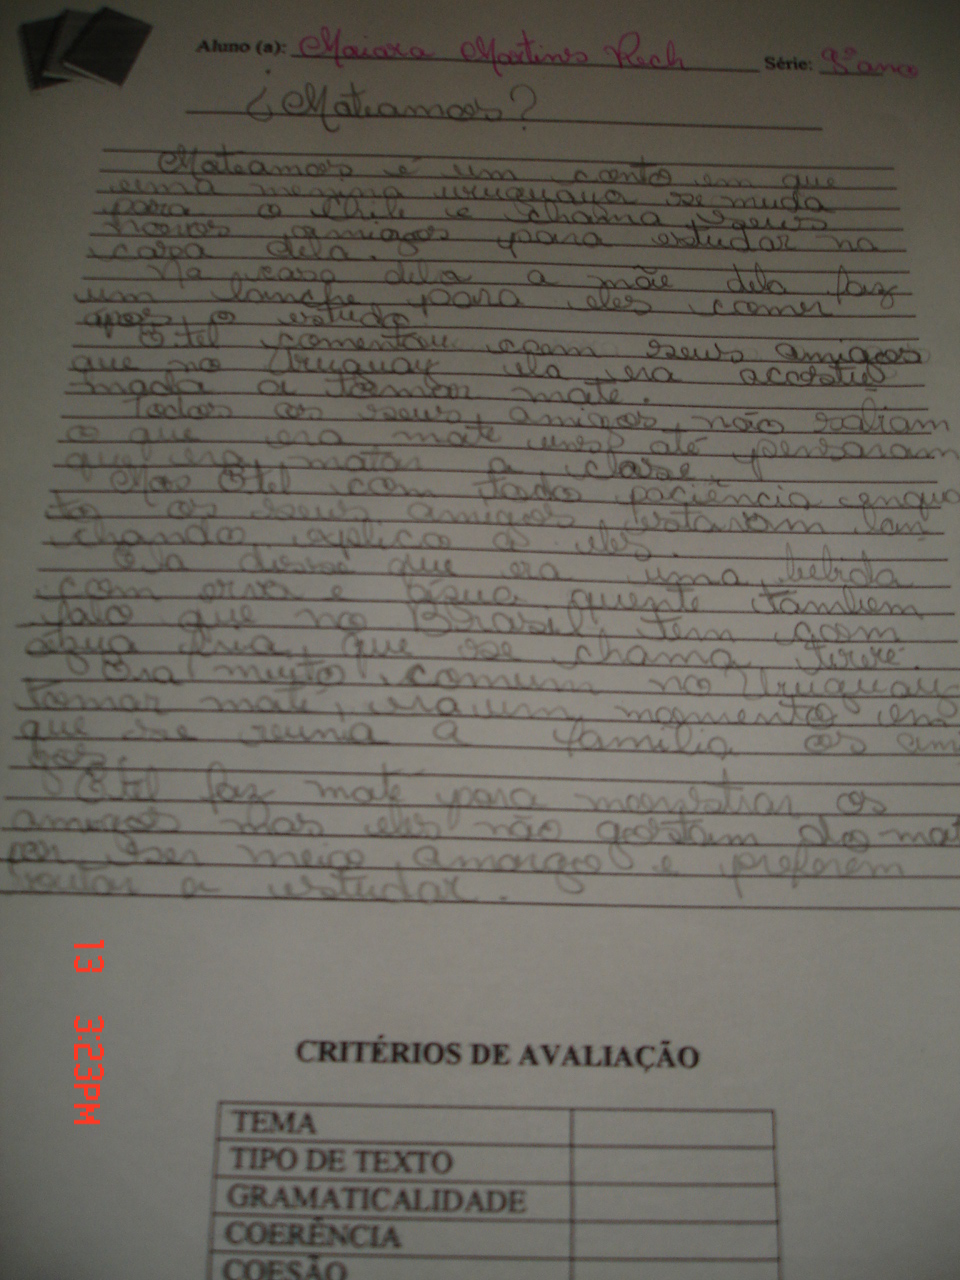 Aluno (a): Maiara Martins Rech Série: 8º ano
¿Mateamos?
Mateamos é um conto em que
uma menina uruguaya se muda
para o Chile e chama seus
novos amigos para estudar na
casa dela.
Na casa dela a mãe dela faz
um lanche para eles comer
após o estudo.
Etel comentou com seus amigos
que no Uruguay ela era acostu
mada a tomar mate.
Todos os seus amigos não sabiam
o que era mate uns até pensaram
que era matar a classe.
Mas Etel com toda paciência enqua
to os seus amigos estavam lan
chando explico a eles.
Ela disse que era uma bebida
com erva e água quente tambem
falo que no Brasil tem com
água fria que se chama tereré.
Era muito comum no Uruguay
tomar mate, era um momento em
que se reunia a família os ami
gos.
Etel faz mate para mostrar os
amigos mas eles não gostam do mat
por ser meio amargo e preferem
voltar a estudar.
13 3:23PM
CRITÉRIOS DE AVALIAÇÃO
TEMA
TIPO DE TEXTO
GRAMATICALIDADE
COERÊNCIA
COESÃO